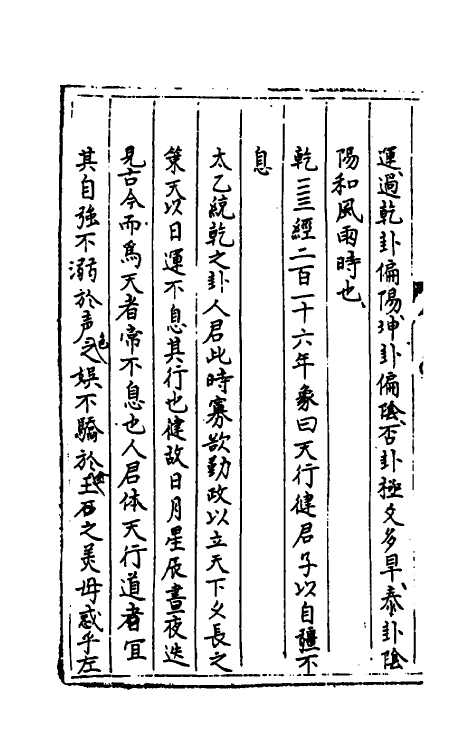 運過乾卦偏陽坤卦偏陰否卦極文多旱泰卦陰
陽和風雨時也
乾☰☰經二百一十六年象曰天行健君子以自疆不
息
太乙統乾之卦人君此時寡欲勤政以立天下久長之
策天以日運不息其行也健故日月星辰晝夜迭
見古今而為天者常不息也人君体天行道者宜
其自強不溺於声色之娛不驕於金玉石之美毋惑乎左